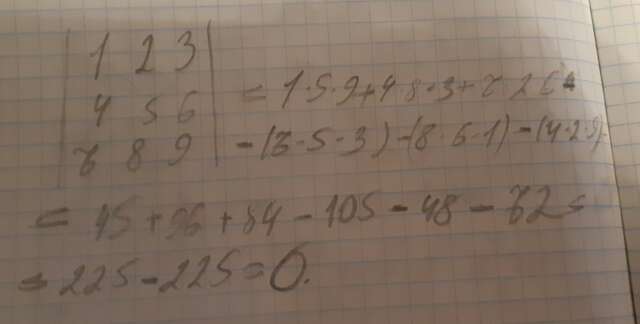 |1 2 3|
|4 5 6| = 1·5·9+4·8·3+7·2·6-
|7 8 9| -(7·5·3)-(8·6·1)-(4·2·9)
= 45+96+84-105-48-72=
= 225-225=0.